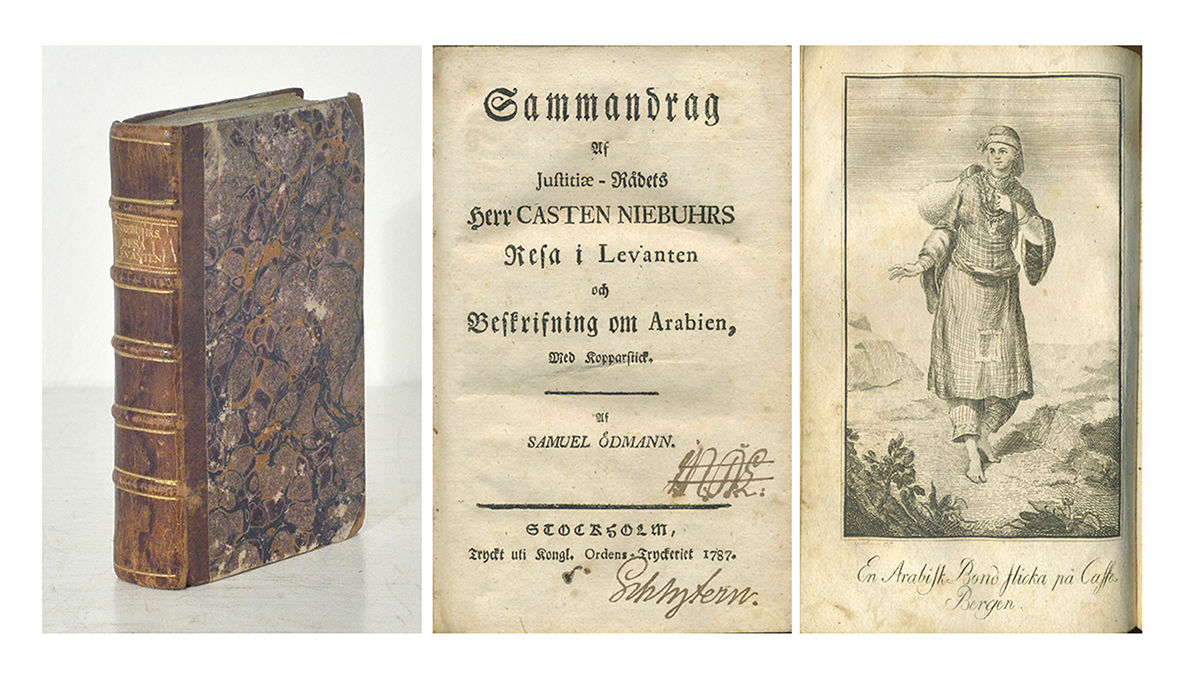 NIEBUHRS
RESA I
LEVANTEN
Sammandrag
Af
Juſtitiæ - Rådets
Herr CASTEN NIEBUHRS
Reſa i Levanten
och
Beſkrifning om Arabien,
Med Kopparſtick.
Af
SAMUEL ÖDMANN.
STOCKHOLM,
Tryckt uti Kongl. Ordens-Tryckeriet 1787.
En Arabiſk Bond flicka på Caffe
Bergen.